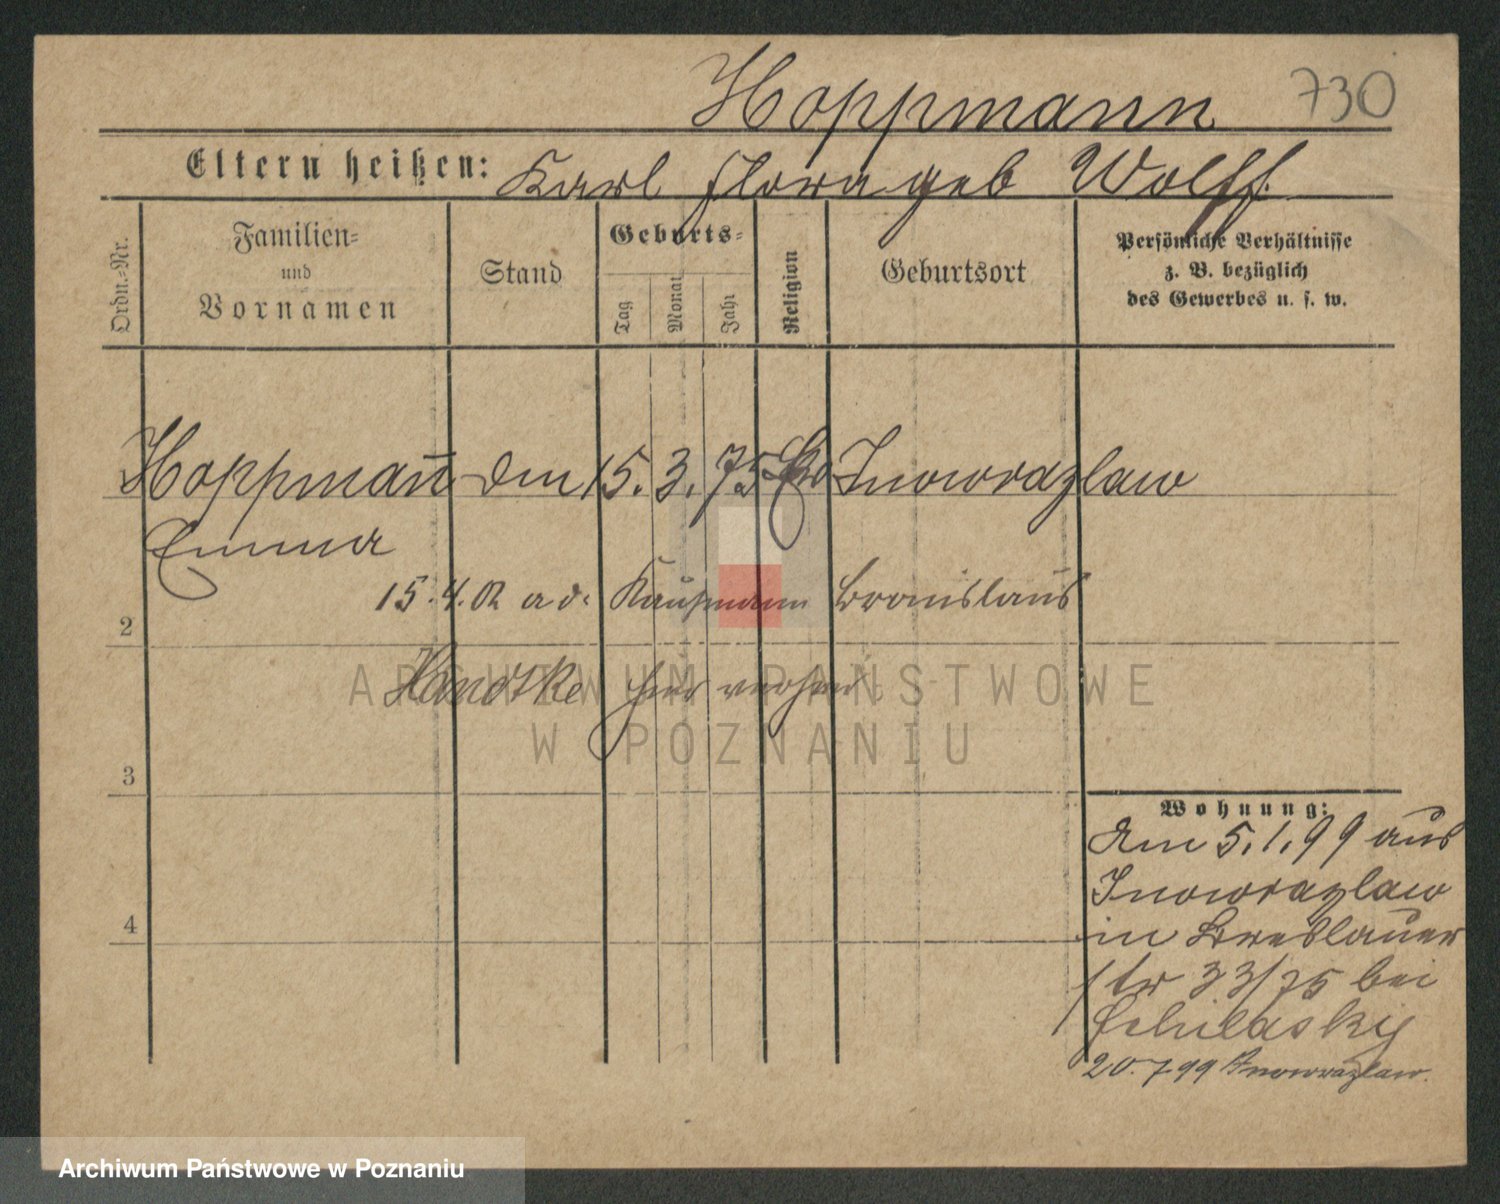 730
Hoppmann
Eltern heißen: Karl Flora geb Wolff.
Ordn.=Nr.
Familien=
und
Vornamen
Stand
Geburts=
Tag
Monat
Jahr
Religion
Geburtsort
Persönliche Verhältnisse
z. B. bezüglich
des Gewerbes u. s. w.
Hoppman̄ Dm 15. 3. 75 Inowrazlaw
Emma
15.4.02 a d. Kaufmann Bronislaus
2
Handtke hier verh
ARCHIWUM PAŃSTWOWE
W POZNANIU
3
Wohnung:
Am 5.1.99 aus
Inowrazlaw
in Breslauer
4
str 33/75 bei
20.7 99 Inowrazlaw.
Archiwum Państwowe w Poznaniu